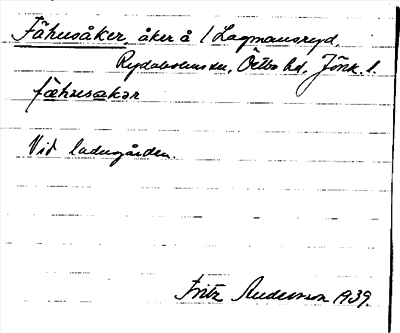 Fähusåker, åker å 1 Lagmansryd,
Rydaholms sn, Östbo hd, Jönk. l.
fæhusakər
Vid ladugården.
Fritz Anderson 1939.